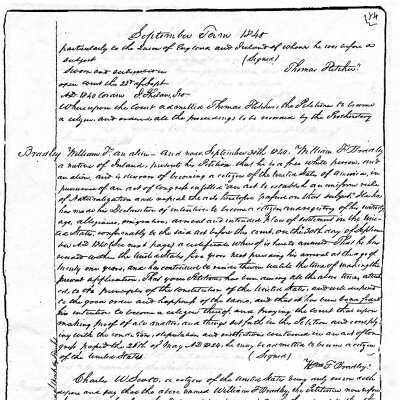 September Term 1840
particularly to the Queen of England and Ireland of whom he was before a
subject (Signed)
Sworn and subscribed in Thomas Fletcher
open Court this 28th of Sept
AD 1840
Whereupon the Court admitted Thomas Fletcher the Petitioner to become
a citizen and ordered all the proceedings to be recorded by the Prothonotary
Bradley William F. an alien. And now September 30th 1840. William F. Bradley
a native of Ireland presents his Petition that he is a free white person, and
an alien, and is desirous of becoming a citizen of the United States of America, in
pursuance of an act of Congress entitled "an act to establish an uniform rule
of Naturalization and repeal the acts heretofore passed on that subject." That he
has made his Declaration of intention to become a citizen
age, allegiance, and intended place of settlement in the Uni-
ted States, conformably to the said act before this court, on the 30th day of Septem-
ber AD 1840 a certificate whereof is hereto annexed. That he has
resided within the United States five years next preceding his arrival at the age of
twenty one years, and has continued to reside therein until the time of making the
present application. That your Petitioner has been during all that time attach-
ed to the principles of the Constitution of the United States, and well disposed
to the good order and happiness of the same, and that it has been bona fide
his intention to become a citizen thereof and praying the court that upon
making proof of all matters and things set forth in the Petition and comply-
ing with the conditions, stipulation and restrictions contained in an act of Con-
gress passed the 26th of May AD 1824, he may be admitted to become a citizen
of the United States (Signed)
Wm F. Bradley
Charles W. Scott a citizen of the United States being duly sworn doth
depose and say that the above named William F. Bradley the Petitioner now before